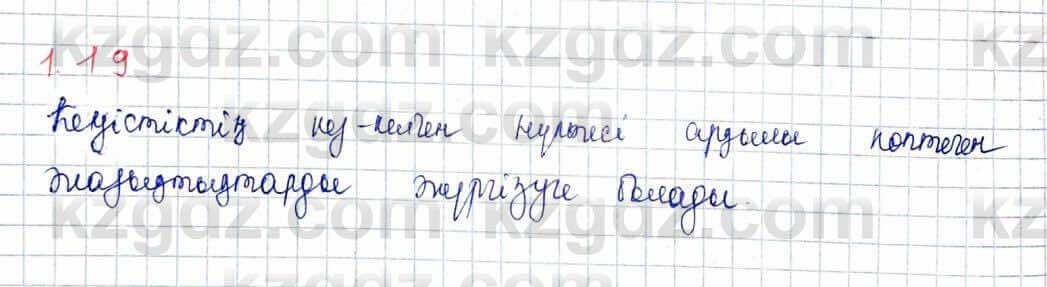 kzgdz.com kzgdz.com kz
1.19
Кеңістіктің кез-келген нүктесі арқылы көптеген
kzgdz.com kzgdz.com kz
жазықтықтарды жүргізуге болады.
kzgdz.com kzgdz.com kz